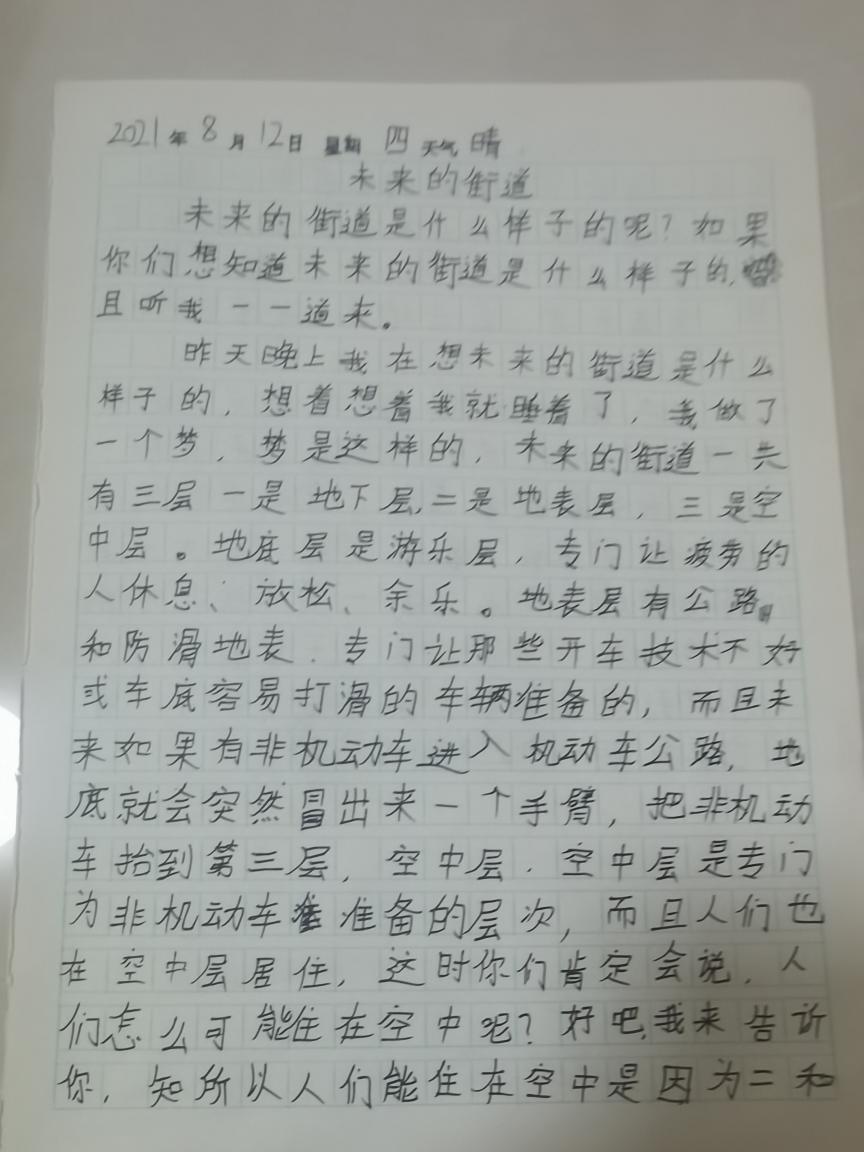 2021年8月12日 星期 四 天气 晴
未来的街道
未来的街道是什么样子的呢?如果
你们想知道未来的街道是什么样子的,
且听我一一道来。
昨天晚上我在想未来的街道是什么
样子的,想着想着我就睡着了,我做了
一个梦,梦是这样的,未来的街道一共
有三层一是地下层,二是地表层,三是空
中层。地底层是游乐层,专门让疲劳的
人休息、放松、余乐。地表层有公路
和防滑地表.专门让那些开车技术不好
或车底容易打滑的车辆准备的,而且未
来如果有非机动车进入机动车公路,地
底就会突然冒出来一个手臂,把非机动
车抬到第三层,空中层.空中层是专门
为非机动车准备的层次,而且人们也
在空中层居住,这时你们肯定会说,人
们怎么可能住在空中呢?好吧,我来告诉
你,知所以人们能住在空中是因为二和